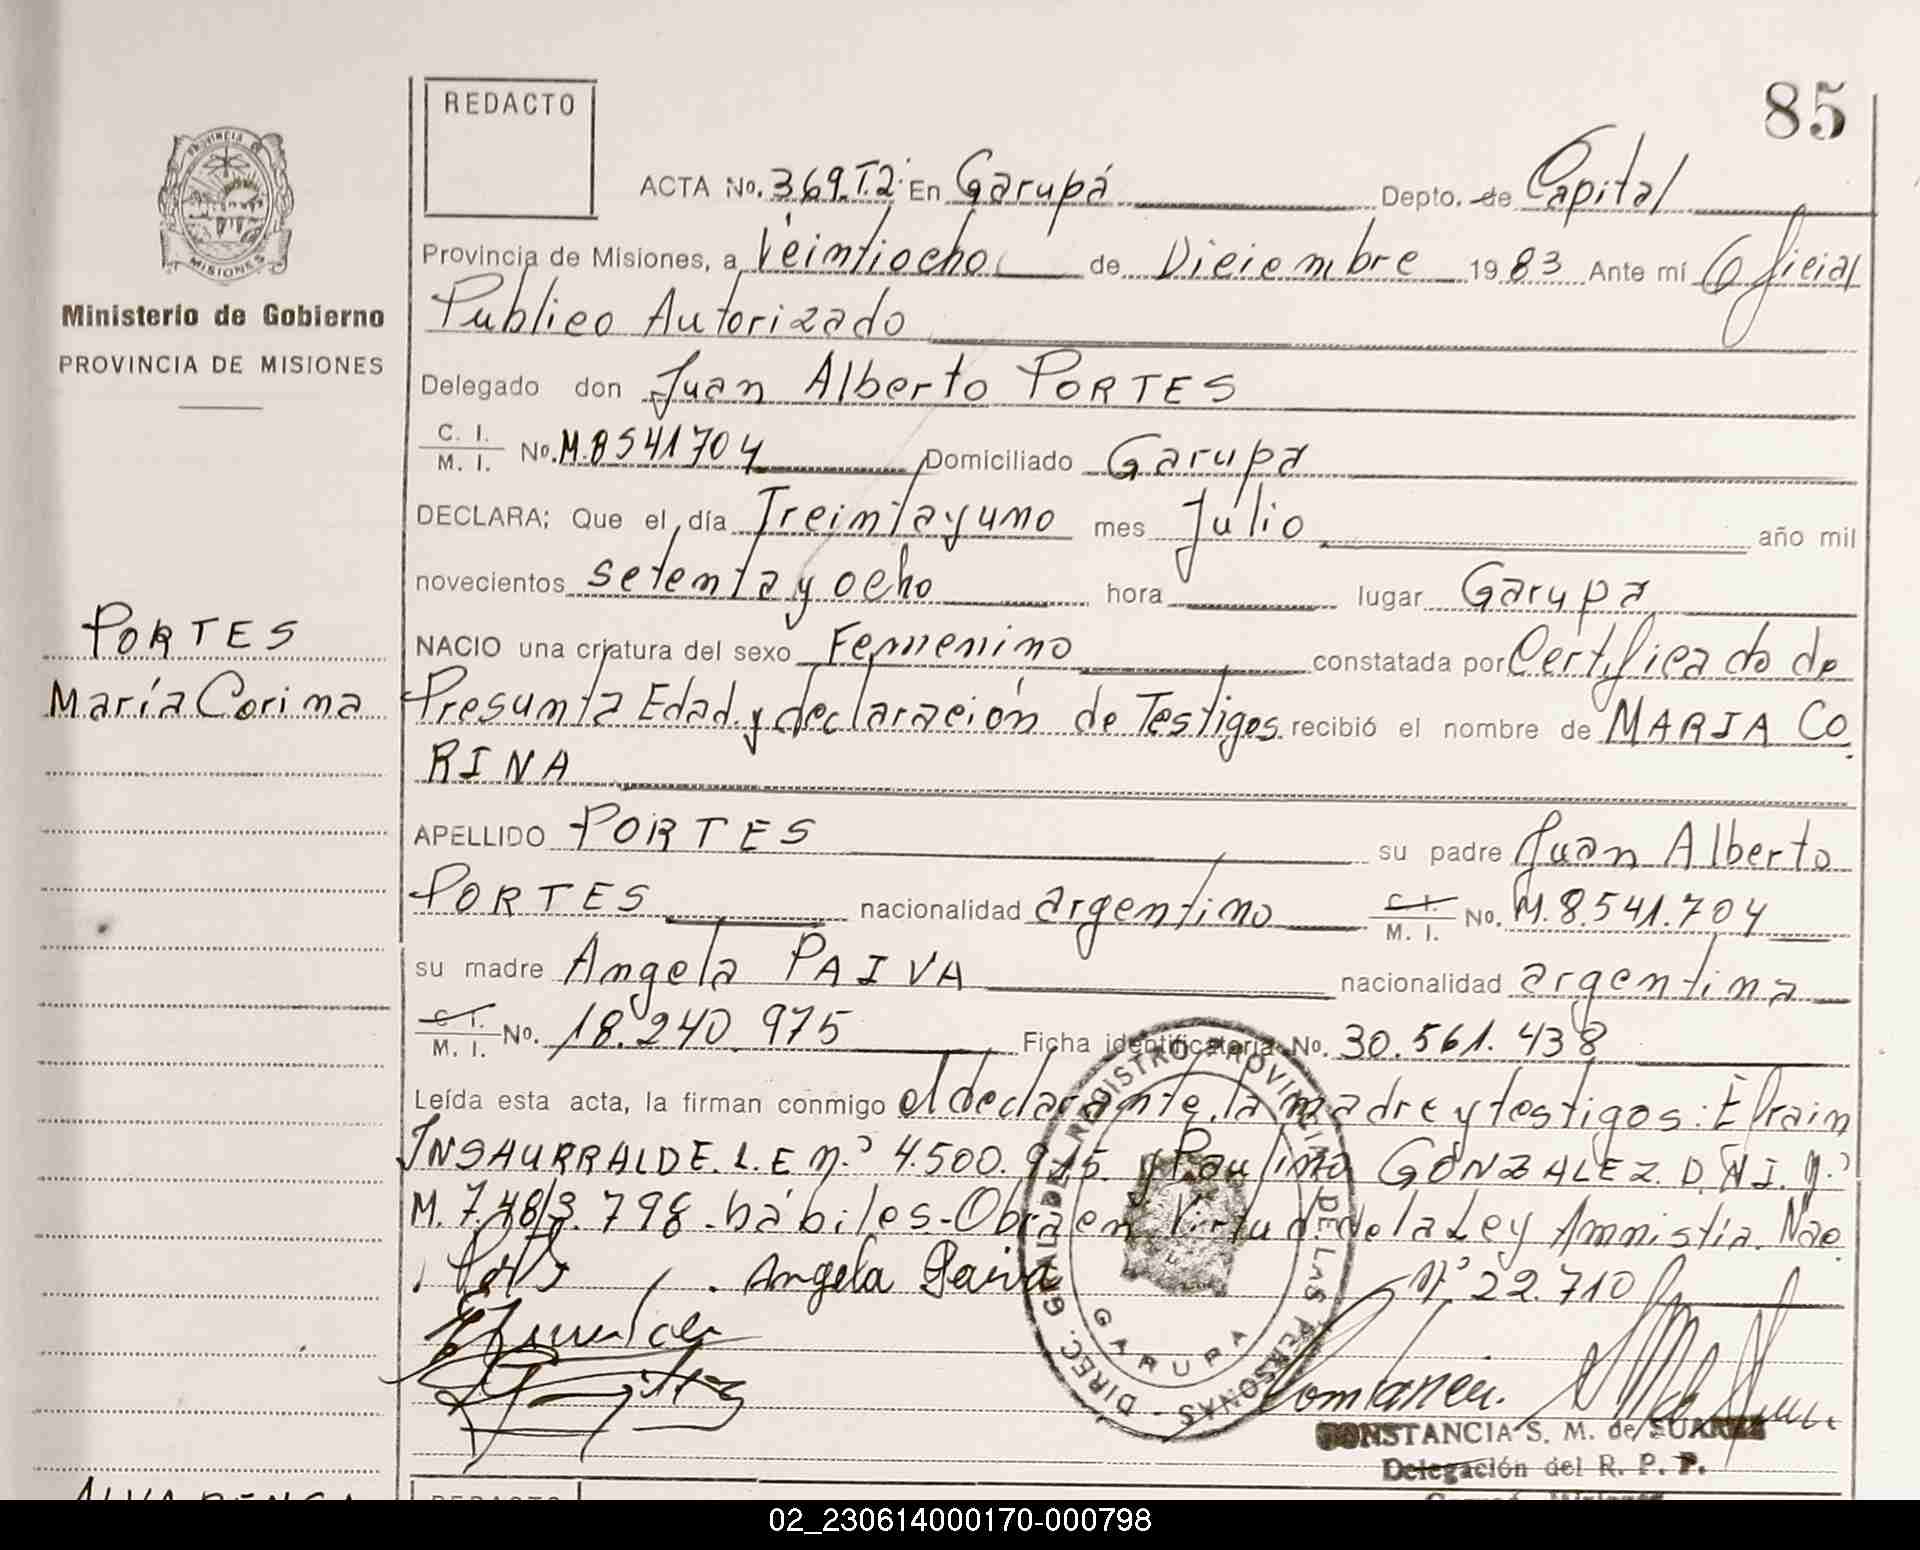 85
REDACTO
PROVINCIA DE
MISIONES
Ministerio de Gobierno
PROVINCIA DE MISIONES
ACTA No. 369.T.2 En Garupá Depto. de Capital
Provincia de Misiones, a Veintiocho de Diciembre 1983 Ante mí Oficial
Publico Autorizado
Delegado don Juan Alberto PORTES
C. I.
M. I. No. M.8541704 Domiciliado Garupa
DECLARA; Que el día Treintayuno mes Julio año mil
novecientos setenta y ocho hora lugar Garupa
PORTES
María Corina
NACIO una criatura del sexo Femenino constatada por Certificado de
Presunta Edad y declaración de Testigos recibió el nombre de MARIA CO
RINA
APELLIDO PORTES su padre Juan Alberto
PORTES nacionalidad argentino C. I. M. I. No. M.8.541.704
su madre Angela PAIVA nacionalidad argentina
C. I.
M. I. No. 18.240.975 Ficha identificatoria No. 30.561.438
Leída esta acta, la firman conmigo el declarante, la madre y testigos: Efrain
INSAURRALDE. L.E nº 4.500.915. y Paulino GONZALEZ. D.N.I. nº
M. 7.483.798 - hábiles - Obra en Virtud de la Ley Amnistía. Nac.
Nº 22.710
Angela Paiva
DIREC. GRAL. DEL REGISTRO PROVINCIAL DE LAS PERSONAS -
GARUPA
CONSTANCIA S. M. de SUAREZ
Delegación del R. P. P.
REDACTO
02_230614000170-000798